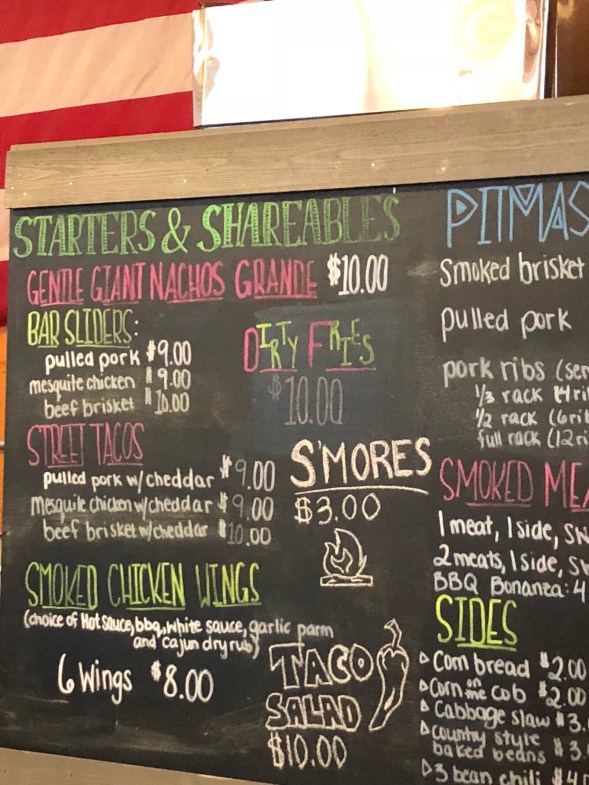 STARTERS & SHAREABLES
GENTLE GIANT NACHOS GRANDE $10.00
BAR SLIDERS:
pulled pork $9.00
mesquite chicken $9.00
beef brisket $10.00
DIRTY FRIES
$10.00
STREET TACOS
pulled pork w/cheddar $9.00
mesquite chicken w/cheddar $9.00
beef brisket w/cheddar $10.00
S'MORES
$3.00
SMOKED CHICKEN WINGS
(choice of Hot sauce, bbq, white sauce, garlic parm
and cajun dry rub)
6 Wings $8.00
TACO
SALAD
$10.00
PITMAS
Smoked brisket
pulled pork
pork ribs (ser
1/3 rack (4 ri
1/2 rack (6 rib
full rack (12 ri
SMOKED MEA
1 meat, 1 side,
2 meats, 1 side,
BBQ Bonanza: 4
SIDES
Corn bread $2.00
Corn on the cob $2.00
Cabbage slaw $3.
Country style
baked beans $3.
3 bean chili $4.